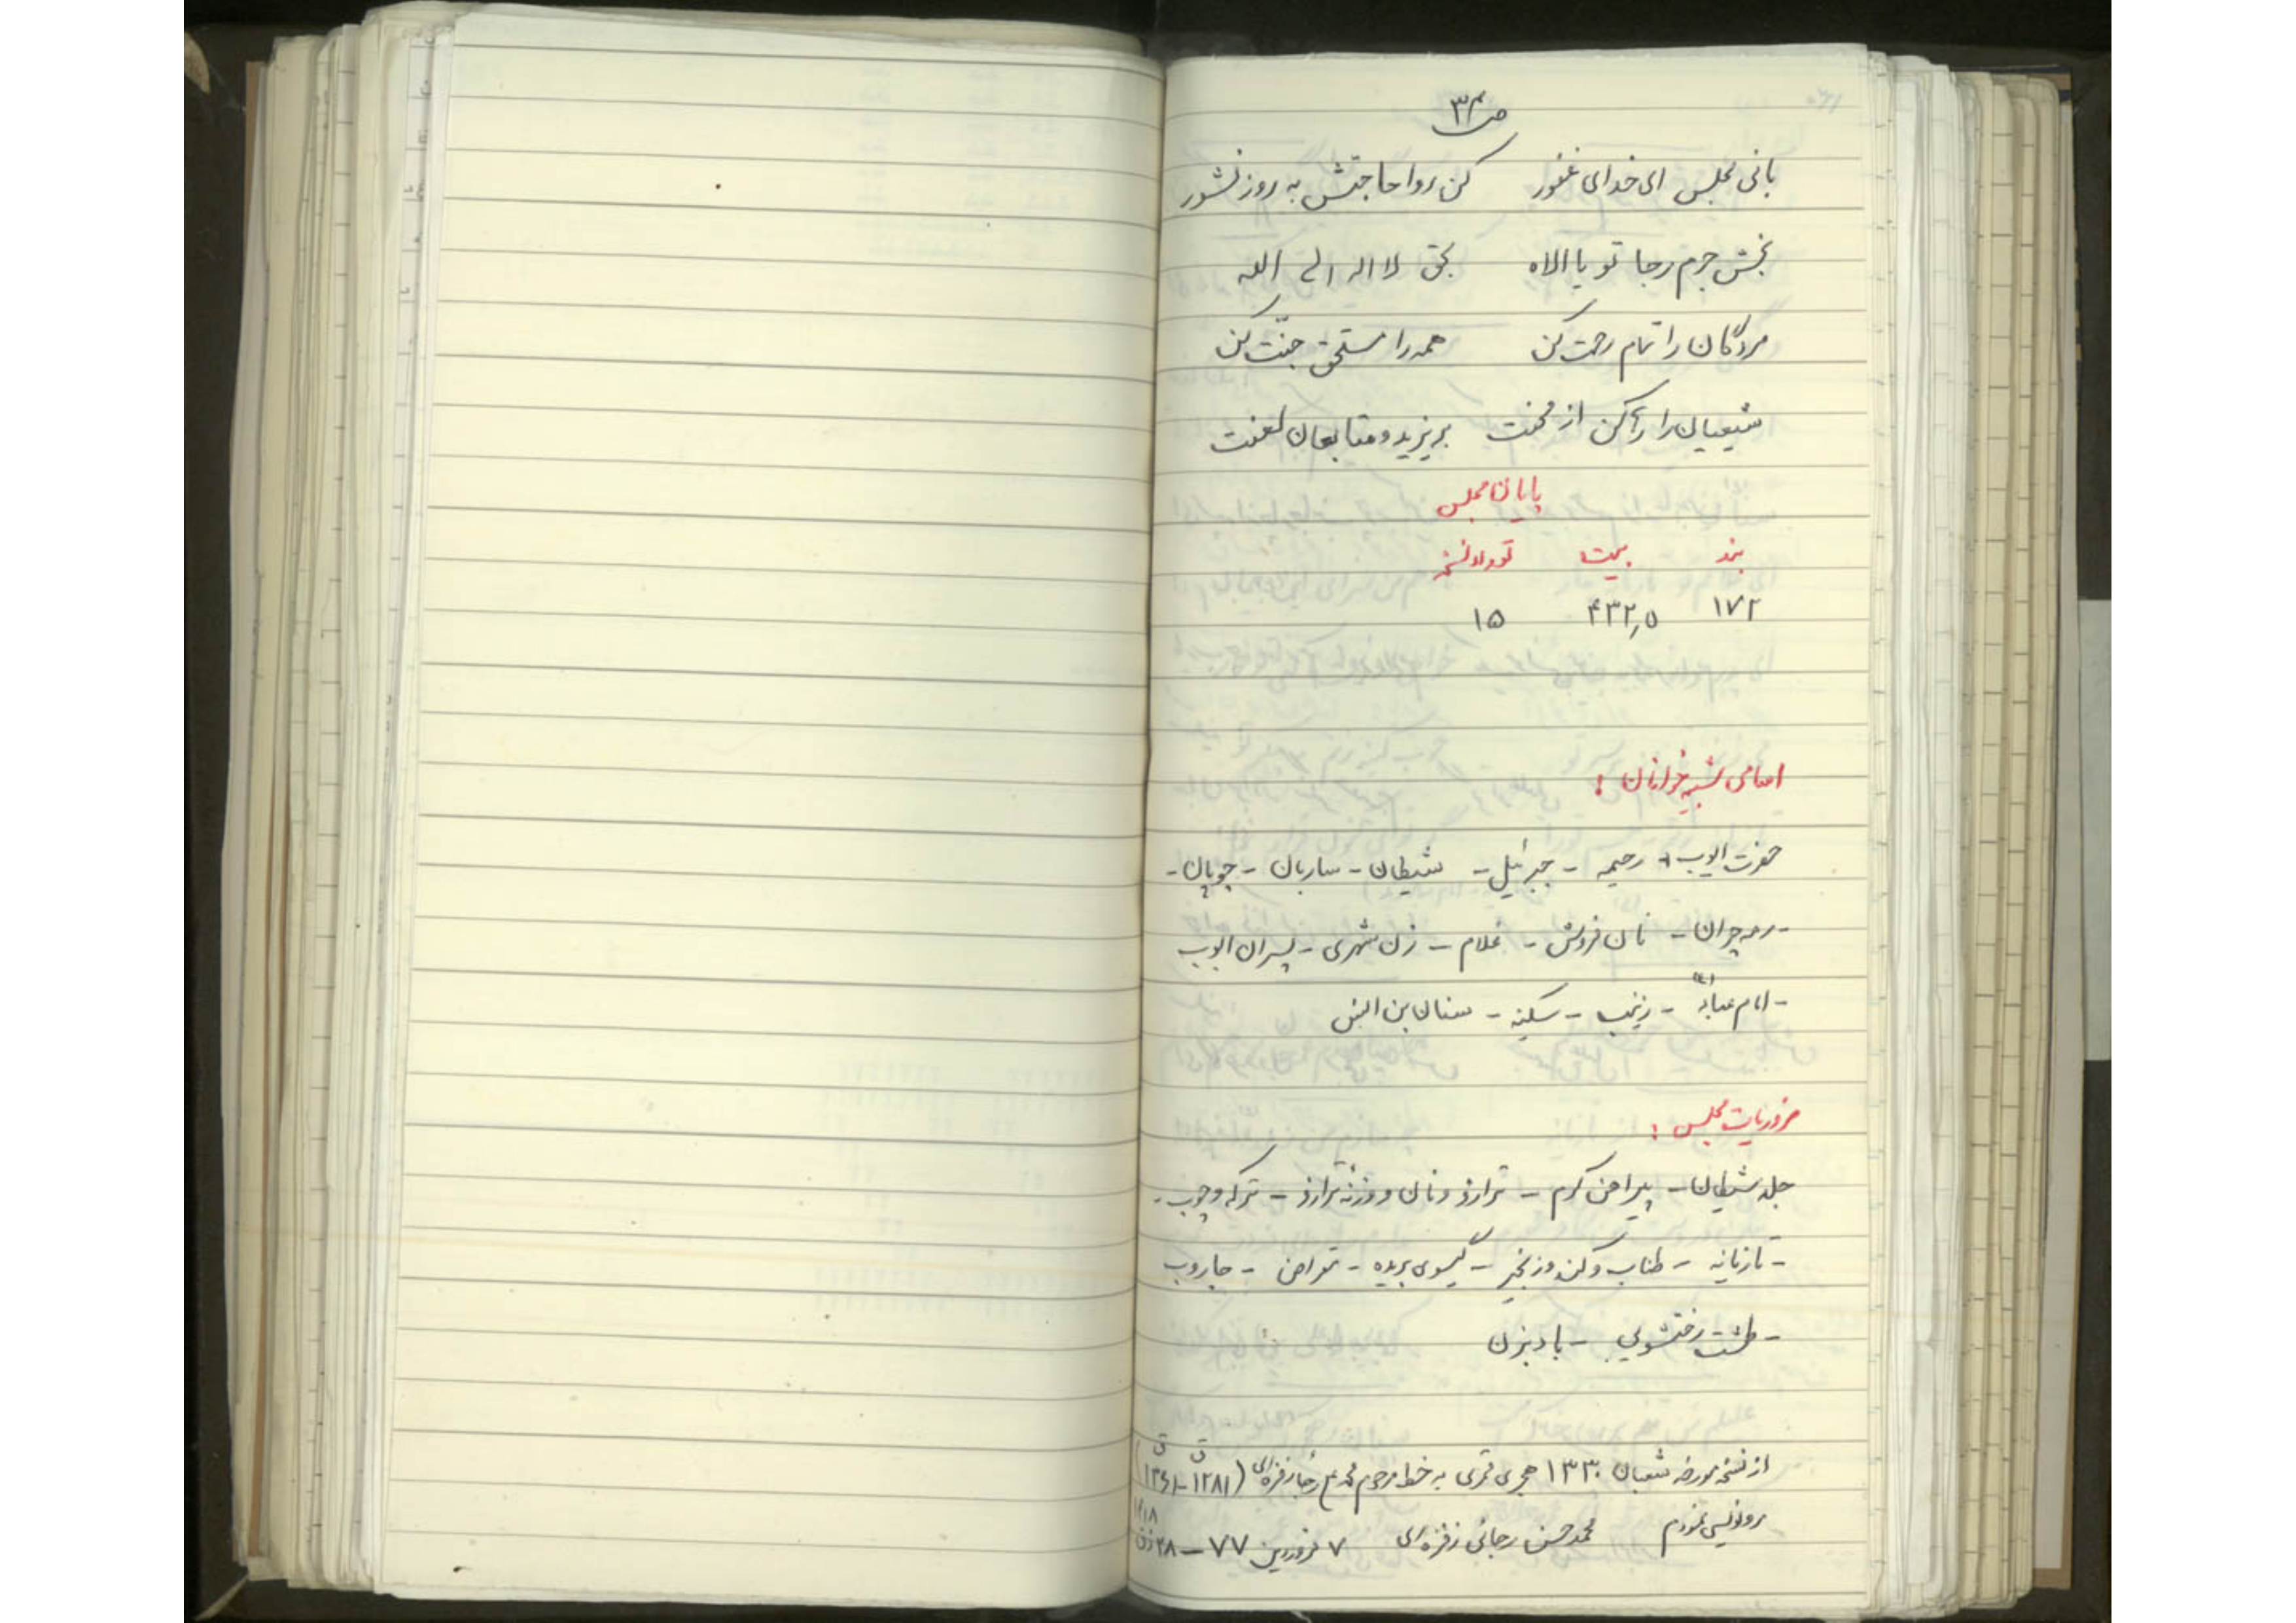 ص ۳۴
بانی مجلس ای خدای غفور    کن روا حاجتش به روز نشور
بخش جرم رجا تو یا الاه    بحق لا اله الی الله
مردگان را تمام رحمت کن    همه را مستحق جنّت کن
شیعیان را رها کن از محنت    بر یزید و متابعان لعنت
پایان مجلس
بند    بیت    تعداد نسخ
۱۷۲    ۴۳۲٫۵    ۱۵
اسامی شبیه خوانان :
حضرت ایوب - رحیمه - جبرئیل - شیطان - ساربان - چوپان -
- رمه چران - نان فروش - غلام - زن شهری - پسران ایوب
- امام عباد (ع) - زینب - سکینه - سنان بن انس
ضروریات مجلس :
جلد شیطان - پیراهن کرم - ترازو و نان و وزنه ترازو - ترکه و چوب -
- تازیانه - طناب و کند و زنجیر - گیسوی بریده - مقراض - جاروب
- طشت رختشویی - بادبزن
از نسخه مورخه شعبان ۱۳۳۰ هجری قمری به خط مرحوم محمد علی رجا زفره ای (۱۲۸۱ ق - ۱۳۶۱ ق)
رونویسی نمودم    محمد حسن رجائی زفره ای    ۷ فروردین ۷۷ - ۲۸ ذق ۱۴۱۸